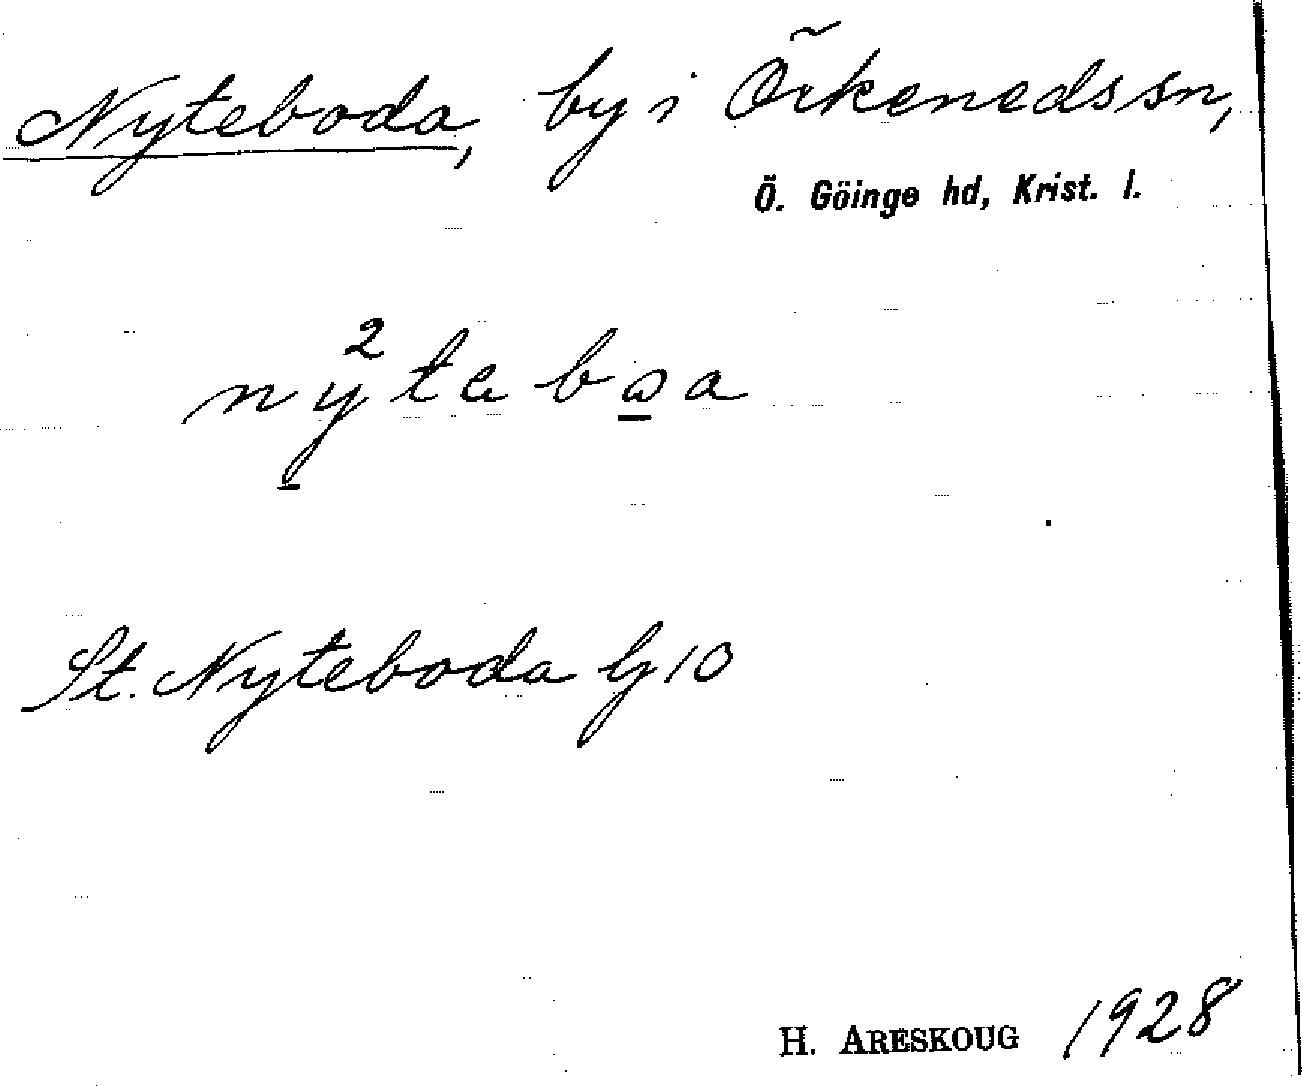 Nyteboda, by i Örkeneds sn,
Ö. Göinge hd, Krist. l.
St. Nyteboda G10
H. ARESKOUG 1928